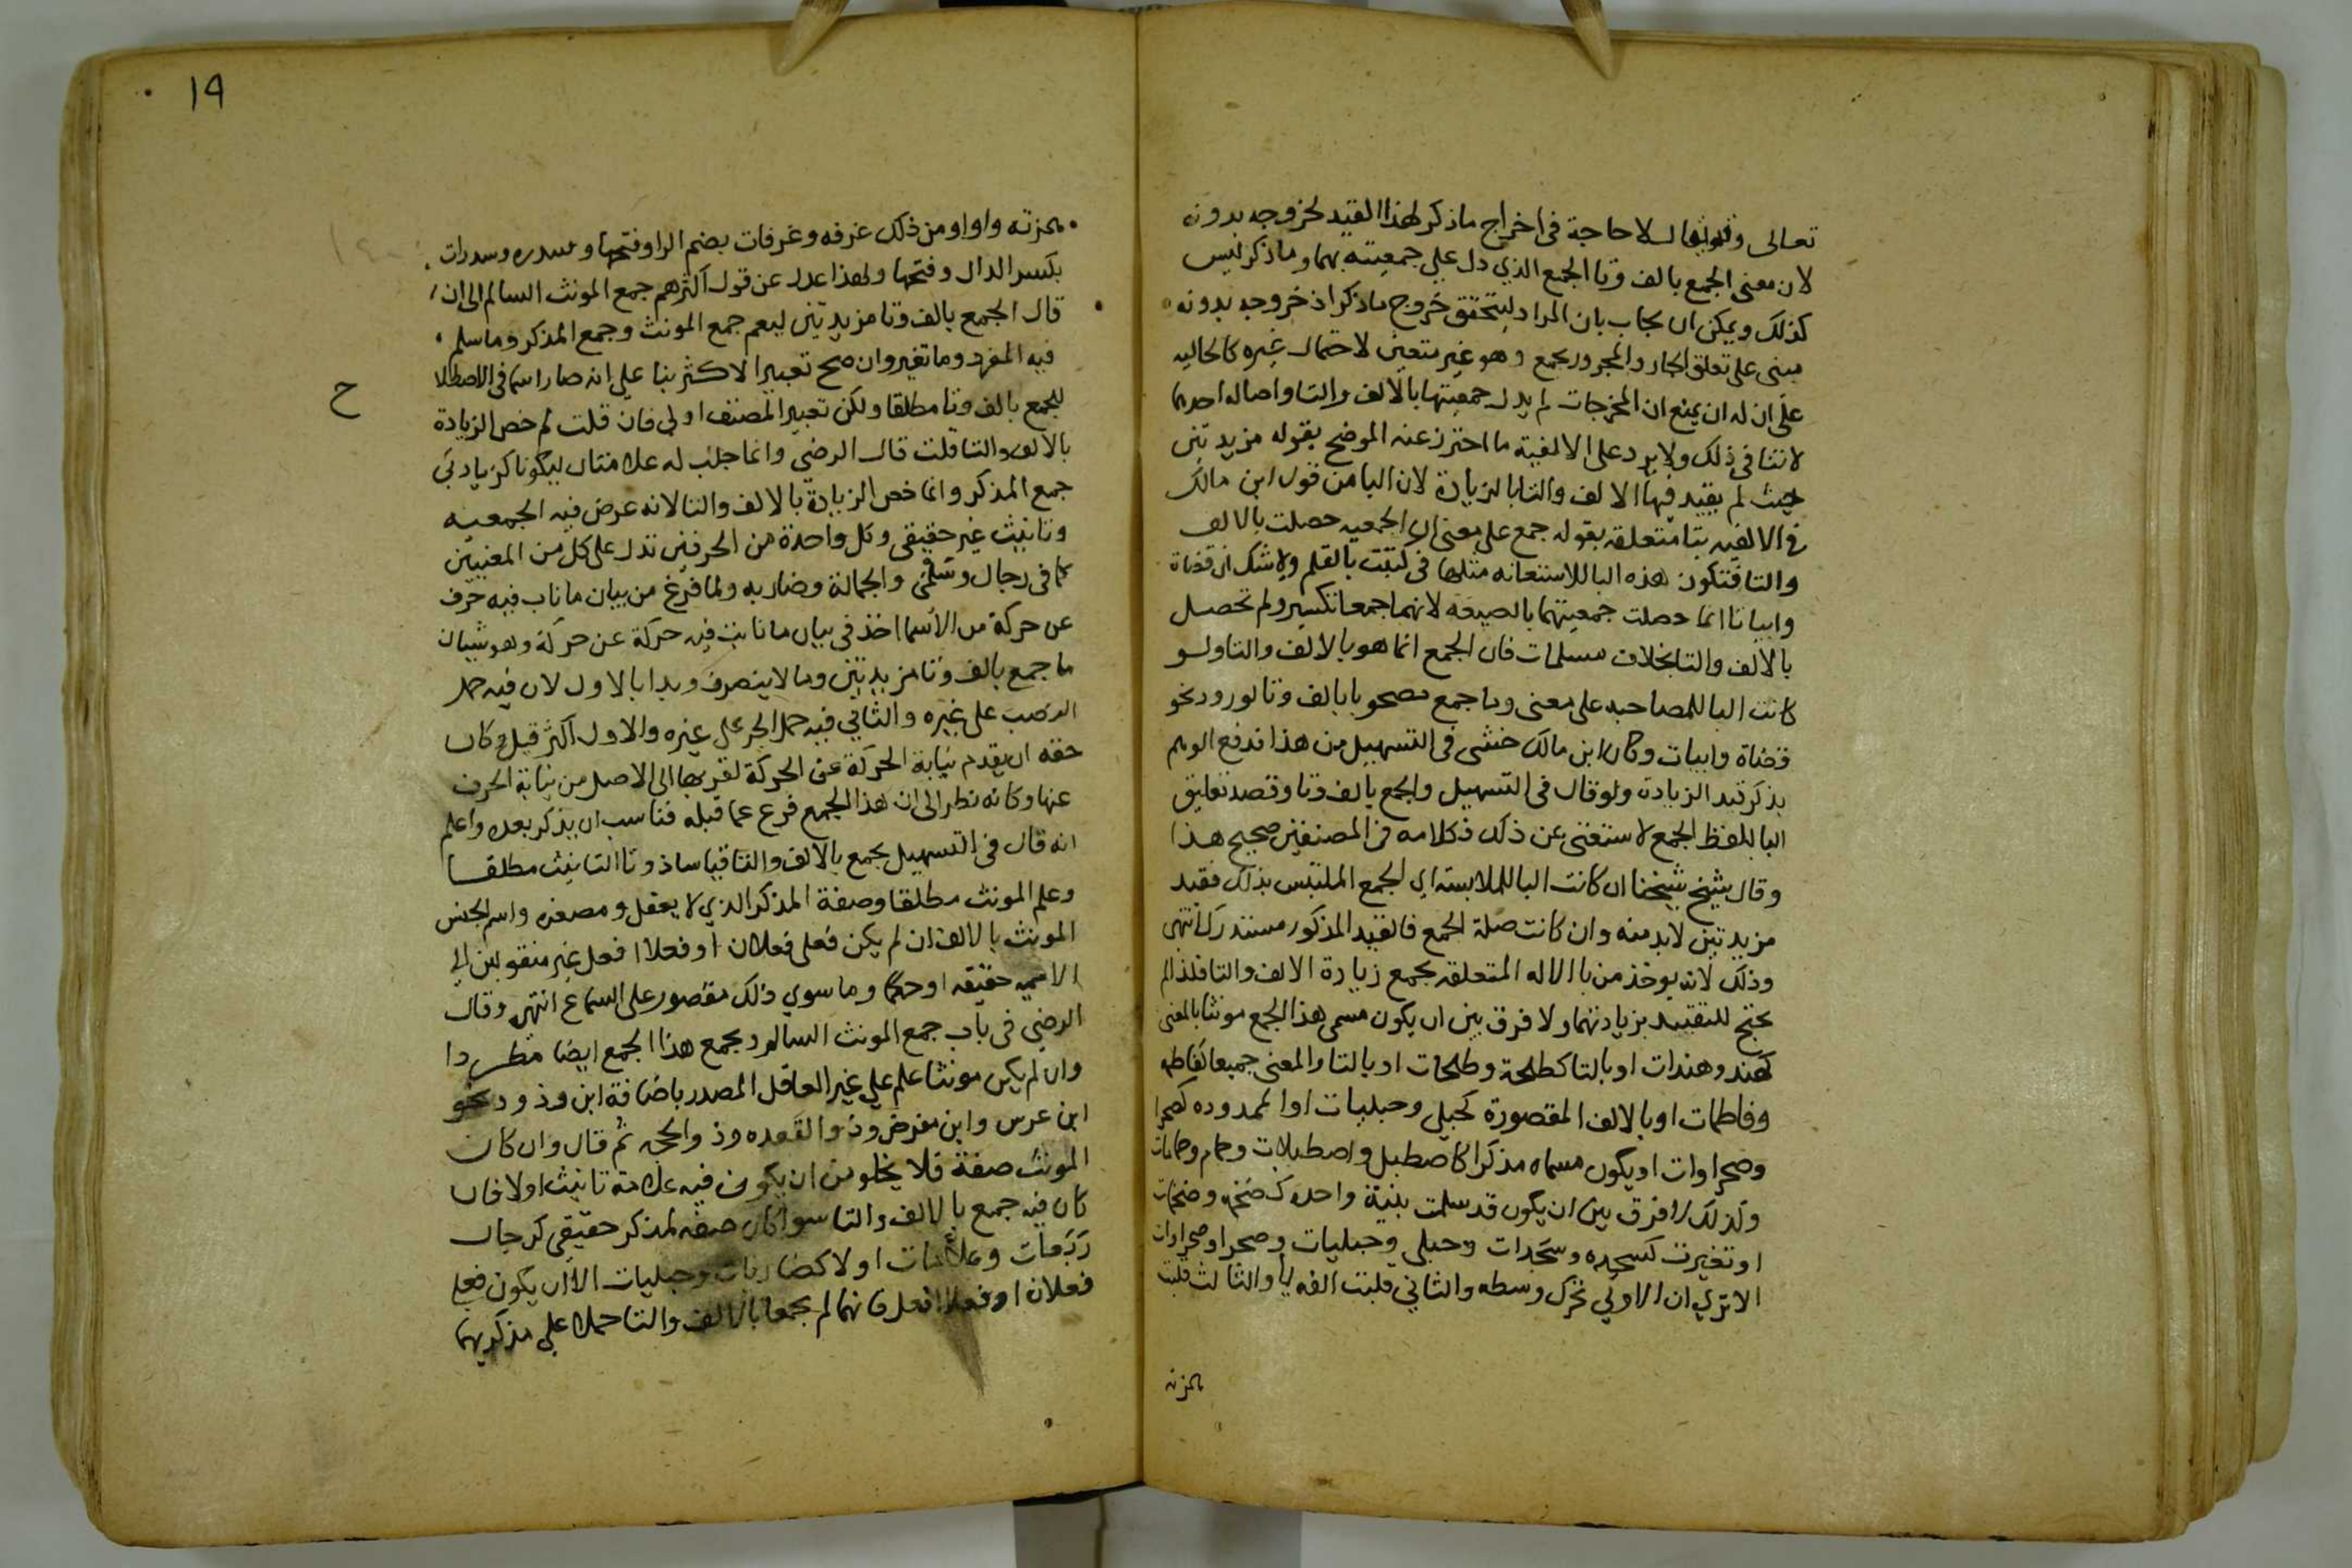 تعالى وقد يقال لا حاجة فى اخراج ماذكر لهذا القيد لخروجه بدونه
لان معنى الجمع بالف وتا الجمع الذي دل علي جمعيته بهما وماذكر ليس
كذلك ويمكن ان يجاب بان المراد ليتحقق خروج ماذكر اذ خروجه بدونه
مبنى على تعلق الجار والمجرور بجمع وهو غير متعين لاحتمال غيره كالحاليه
على ان له ان يمنع ان المخرجات لم يدل جمعيتها بالالف والتا واصاله احدهما
لا تنافى ذلك ولا يرد على الالفية ما احترز عنه الموضح بقوله مزيدتين
حيث لم يقيد فيها الالف والتا بالزيادة لان البا من قول ابن مالك
فى الالفيه بتا متعلقه بقوله جمع على معنى ان الجمعيه حصلت بالالف
والتا فتكون هذه البا للاستعانه مثلها فى كتبت بالقلم ولا شك ان قضاة
وابياتا انما حصلت جمعيتهما بالصيغه لانهما جمعا تكسير ولم تحصل
بالالف والتا بخلاف مسلمات فان الجمع انما هو بالالف والتا ولو
كانت البا للمصاحبه على معنى وما جمع مصحوبا بالف وتا لورود نحو
قضاة وابيات وكان ابن مالك خشى فى التسهيل من هذا فدفع الوهم
بذكر قيد الزيادة ولو قال فى التسهيل والجمع بالف وتا وقصد تعليق
البا بلفظ الجمع لاستغنى عن ذلك فكلامه فى المصنفين صحيح هذا
وقال شيخ شيخنا ان كانت البا للملابسة اي الجمع الملتبس بذلك فقيد
مزيدتين لابد منه وان كانت صلة الجمع فالقيد المذكور مستدرك انتهى
وذلك لانه يوخذ من با الاله المتعلقه بجمع زيادة الالف والتا فلذا لم
يحتج للتقييد بزيادتهما ولا فرق بين ان يكون مسمى هذا الجمع مونثا بالمعنى
كهند وهندات او بالتا كطلحة وطلحات او بالتا والمعنى جميعا كفاطمه
وفاطمات او بالالف المقصورة كحبلى وحبليات او الممدوده كصحرا
وصحراوات او يكون مسماه مذكرا كاصطبل واصطبلات وحمام وحمامات
وكذلك لا فرق بين ان يكون قد سلمت بنية واحده كضخمه وضخمات
او تغيرت كسجده وسجدات وحبلى وحبليات وصحرا وصحراوات
الا تري ان الاولي تحرك وسطه والثاني قلبت الفه يا والثالث قلبت
همزته
19
همزته واوا ومن ذلك غرفه وغرفات بضم الرا وفتحها وسدره وسدرات
بكسر الدال وفتحها ولهذا عدل عن قول اكثرهم جمع المونث السالم الى ان
قال الجمع بالف وتا مزيدتين ليعم جمع المونث وجمع المذكر وما سلم
فيه المفرد وما تغير وان صح تعبير الاكثر بنا على انه صار اسما فى الاصطلا
ح
للجمع بالف وتا مطلقا ولكن تعبير المصنف اولى فان قلت لم خص الزيادة
بالالف والتا قلت قال الرضي وانما جلب له علامتان ليكونا كزيادتي
جمع المذكر وانما خص الزيادة بالالف والتا لانه عرض فيه الجمعيه
وتانيث غير حقيقى وكل واحدة من الحرفين تدل على كل من المعنيين
كما فى رجال وسلمى والجمالة وضاربه ولما فرغ من بيان ما ناب فيه حرف
عن حركة من الأسما اخذ فى بيان ما نابت فيه حركة عن حركة وهو شيان
ما جمع بالف وتا مزيدتين وما لا ينصرف وبدا بالاول لان فيه حمل
النصب على غيره والثاني فيه حمل الجر على غيره والاول اكثر قيل وكان
حقه ان يقدم نيابة الحركة عن الحركة لقربها الى الاصل من نيابة الحرف
عنها وكانه نظر الى ان هذا الجمع فرع عما قبله فناسب ان يذكر بعده واعلم
انه قال فى التسهيل يجمع بالالف والتا قياسا ذو تا التانيث مطلقا
وعلم المونث مطلقا وصفة المذكر الذي لا يعقل ومصغره واسم الجنس
المونث بالالف ان لم يكن فعلى فعلان او فعلا افعل غير منقولين الي
الاسميه حقيقه او حكما وما سوي ذلك مقصور على السماع انتهى وقال
الرضي فى باب جمع المونث السالم ويجمع هذا الجمع ايضا مطردا
وان لم يكن مونثا علم علي غير العاقل المصدر باضافة ابن وذو ونحو
ابن عرس وابن مقرض وذو القعده وذو الحجه ثم قال وان كان
المونث صفة فلا يخلو من ان يكون فيه علامة تانيث اولا فان
كان فيه جمع بالالف والتا سوا كان صفه لمذكر حقيقى كرجال
ربعات وعلامات اولا كضاربات وحبليات الا ان يكون فعلي
فعلان او فعلا افعل فانهما لم يجمعا بالالف والتا حملا علي مذكريهما